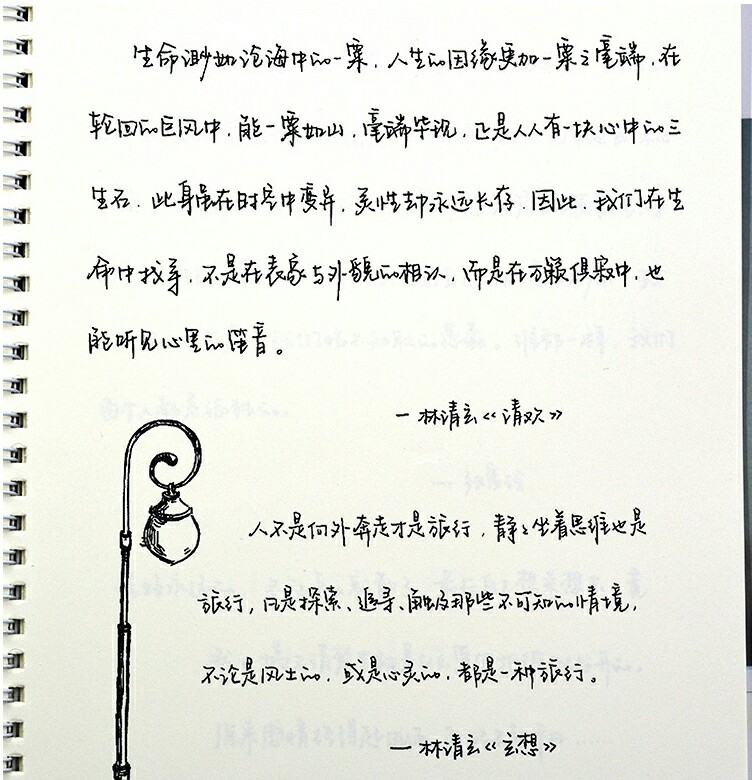 生命渺如沧海中的一粟,人生的因缘更加一粟之毫端,在
轮回的巨风中,能一粟如山,毫端毕现,正是人人有一块心中的三
生石,此身虽在时空中变异,灵性却永远长存,因此,我们在生
命中找寻,不是在表象与外貌的相认,而是在万籁俱寂中,也
能听见心里的笛音。
—林清玄《清欢》
人不是向外奔走才是旅行,静静坐着思维也是
旅行,凡是探索、追寻、触及那些不可知的情境,
不论是风土的,或是心灵的,都是一种旅行。
—林清玄《玄想》